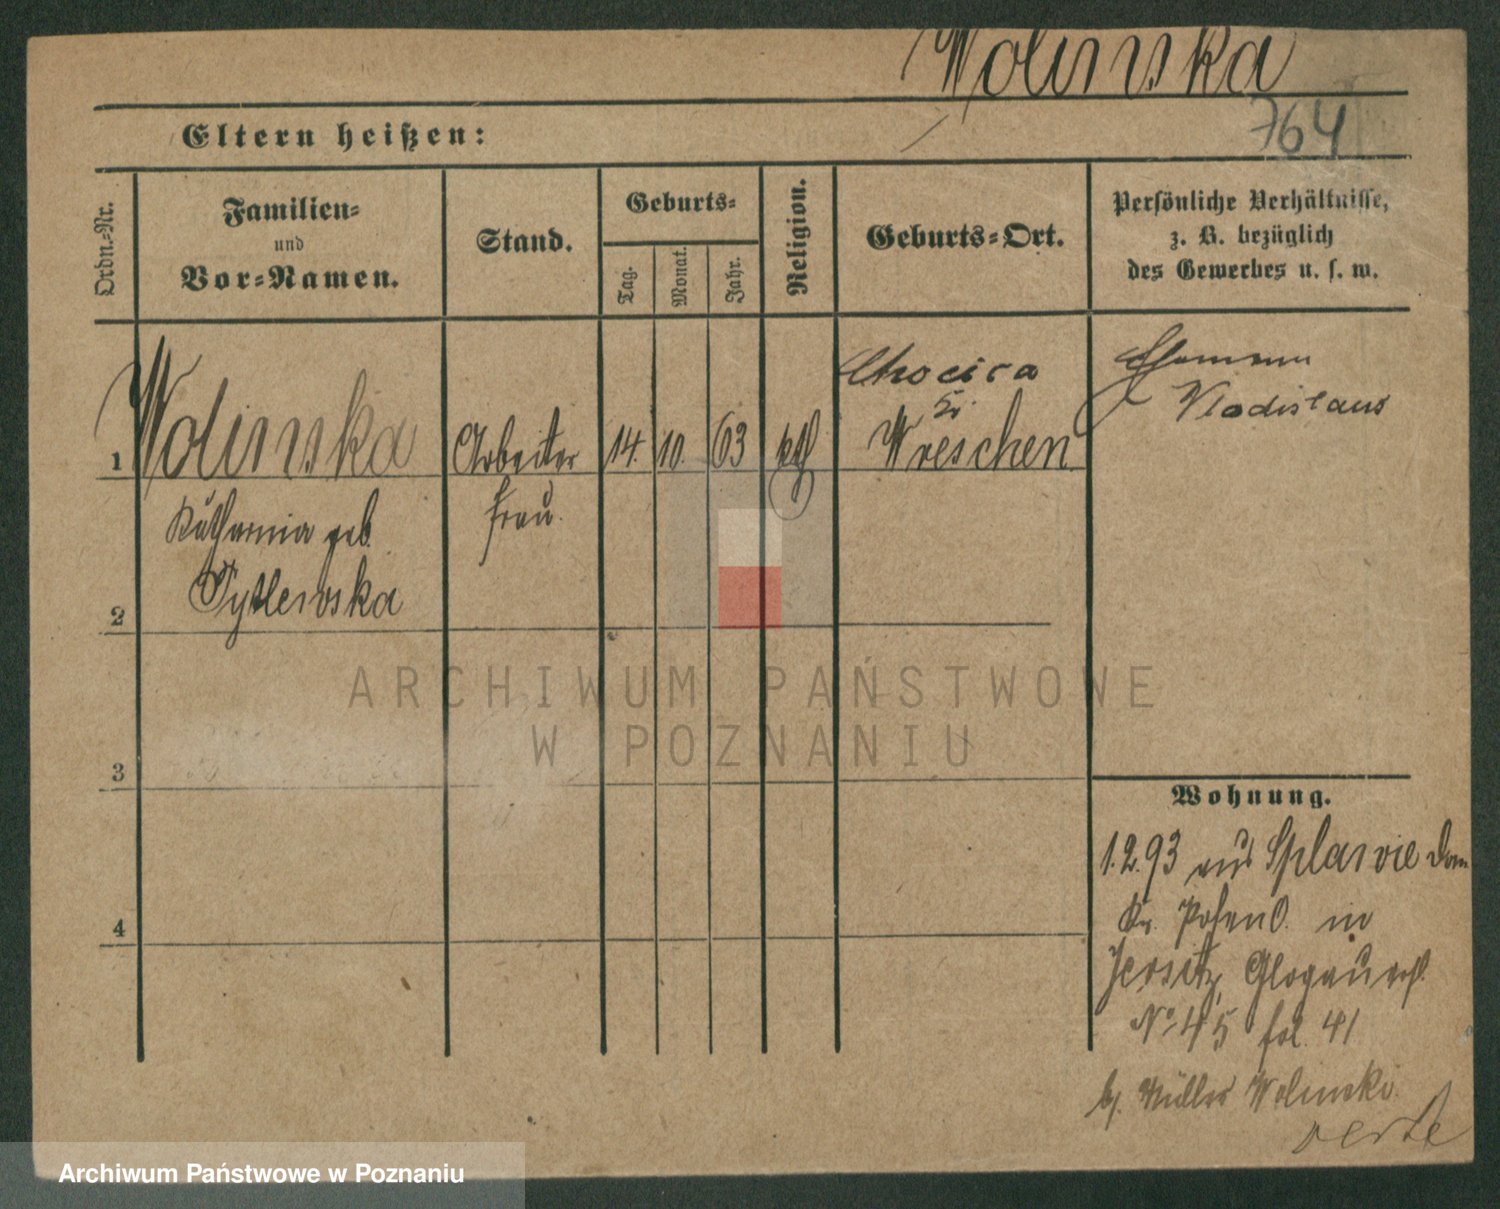 Wolinska
764
Eltern heißen:
Ordn.-Nr.
Familien-
und
Vor-Namen.
Stand.
Geburts-
Tag.
Monat.
Jahr.
Religion.
Geburts-Ort.
Persönliche Verhältnisse,
z. B. bezüglich
des Gewerbes u. s. w.
1
Wolinska
Arbeiter
14.
10.
63
kth
Chocica
Kr.
Wreschen
Ehemann
Vladislaus
Katharina geb.
frau.
2
Tytlewska
ARCHIWUM PAŃSTWOWE
W POZNANIU
3
Wohnung.
1.2.93 aus Splawie Dom
4
Kr. Posen O. in
Jersitz, Glogauerst.
No 45 fol. 41
b/. Müller Wolinski
verte
Archiwum Państwowe w Poznaniu